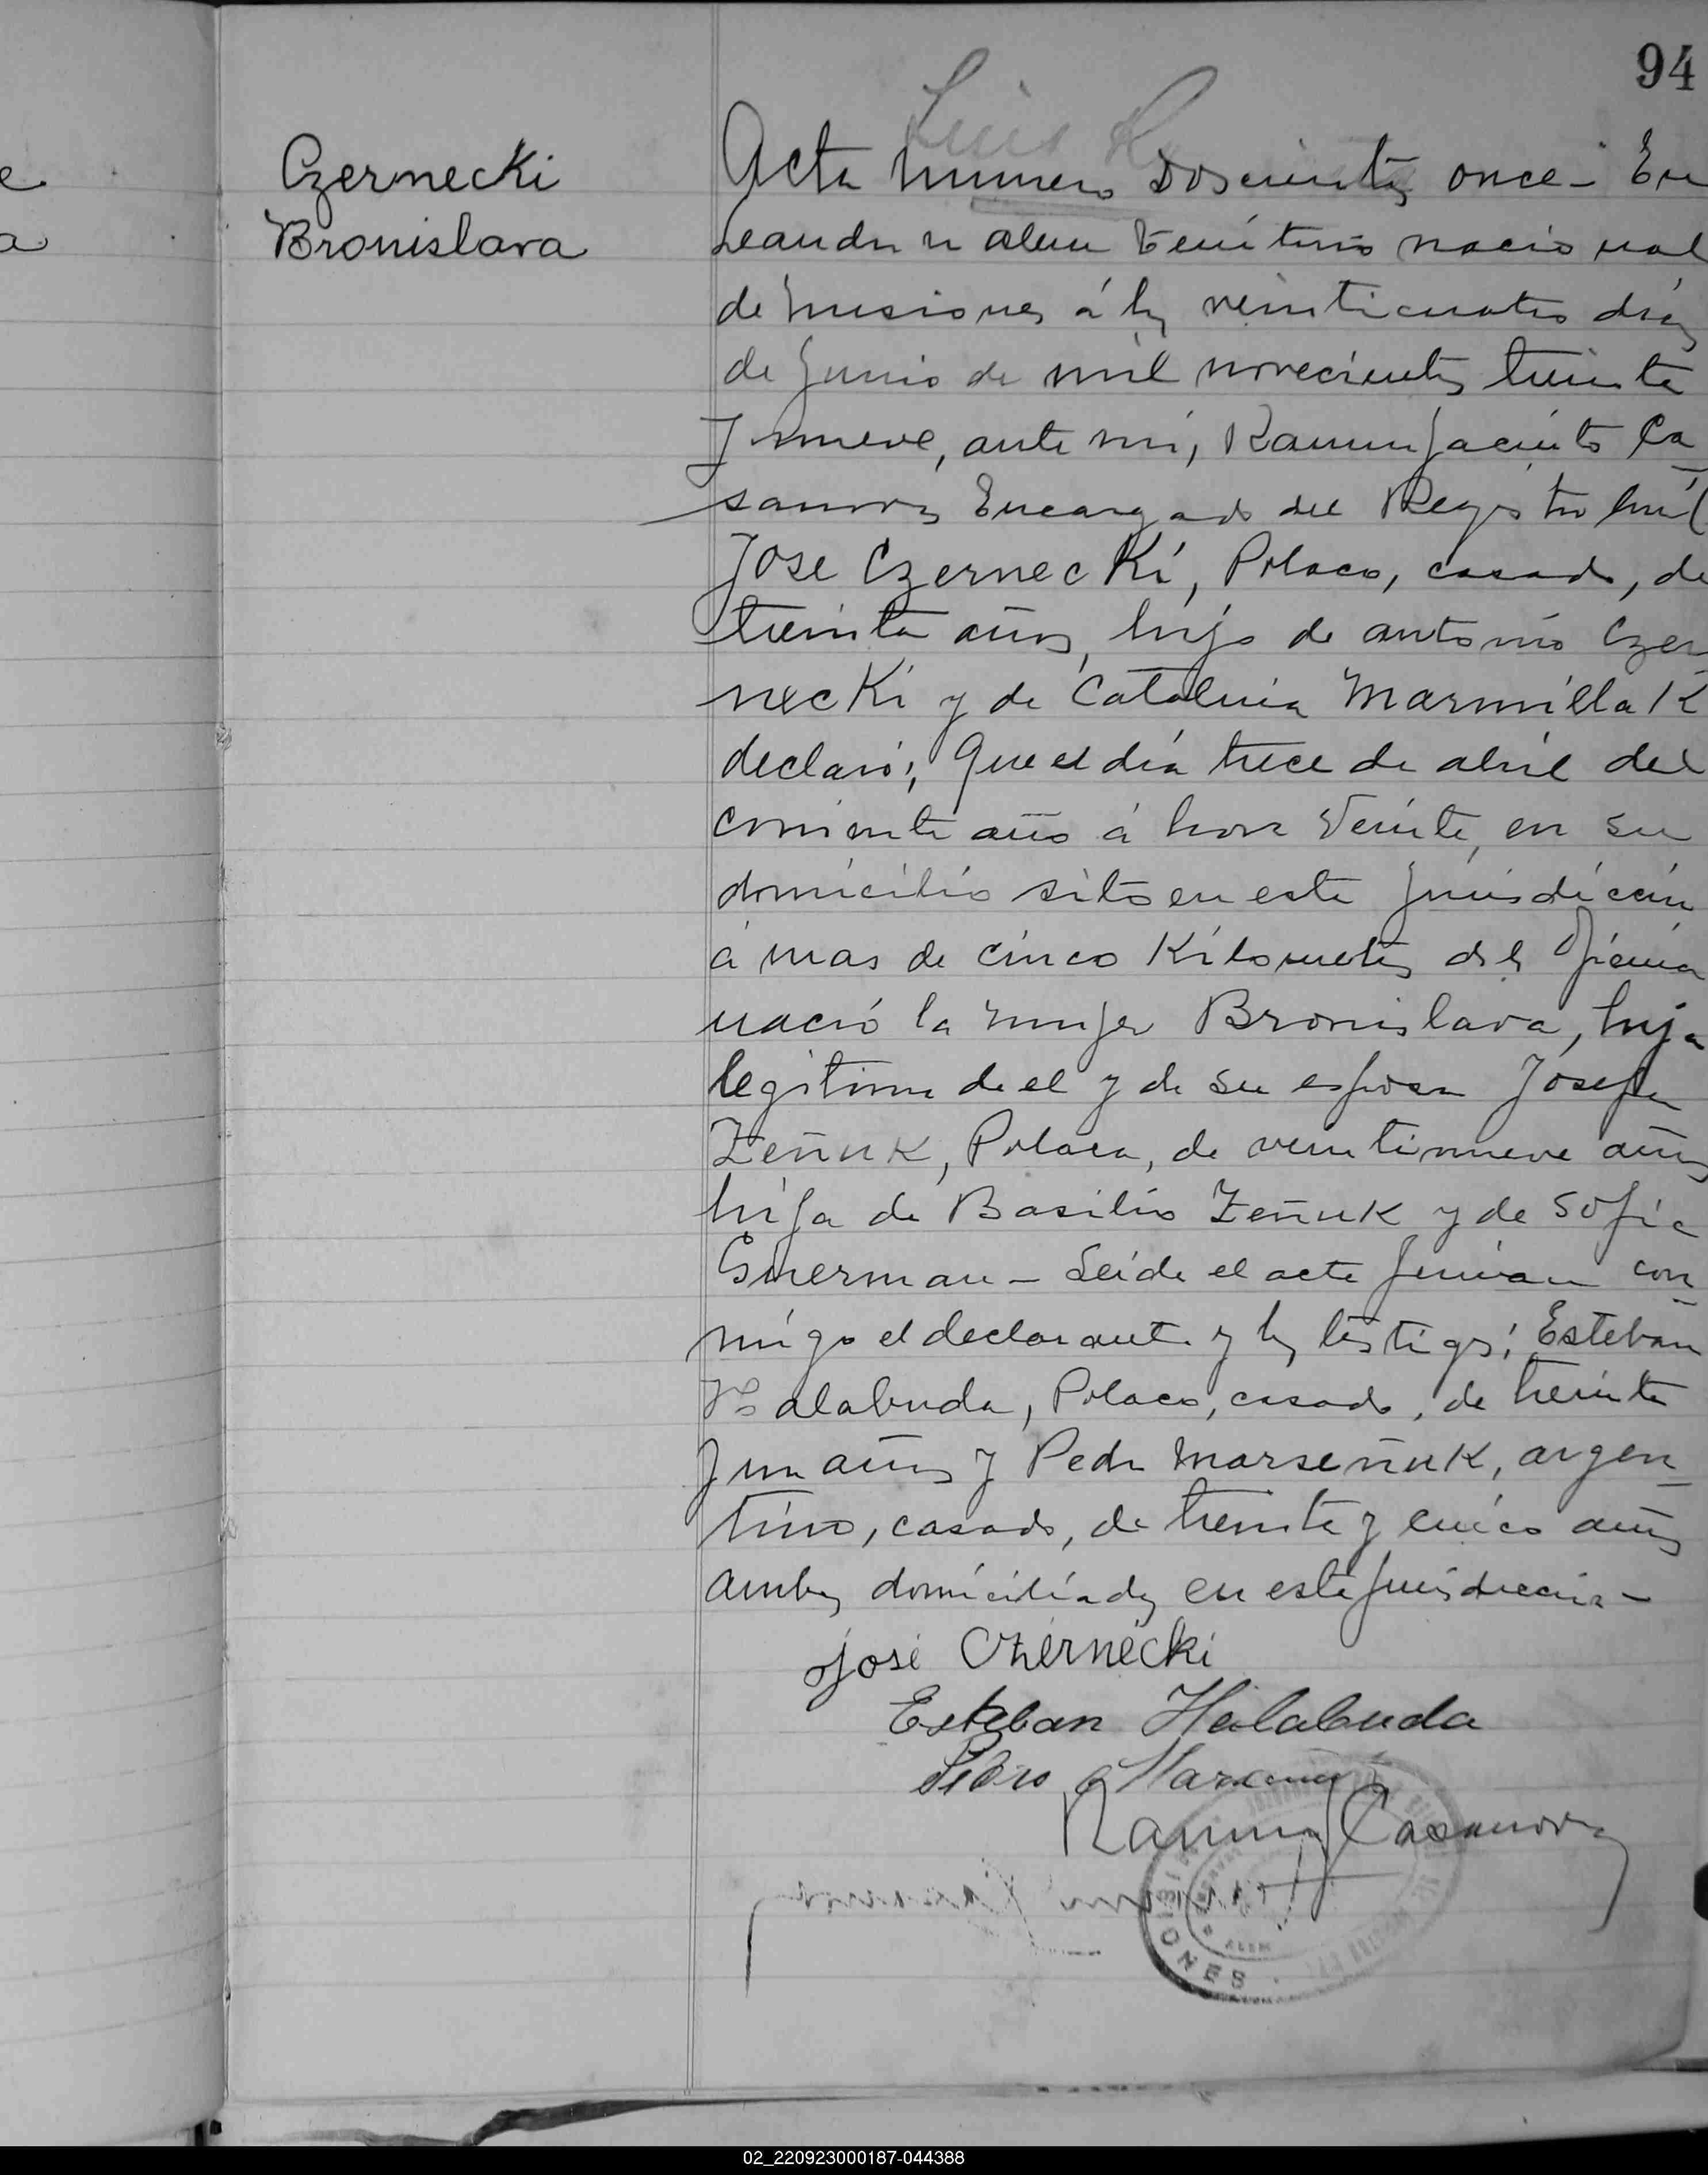 94
Luis
Czernecki
Bronislava
Acta numero Doscientos once - En
Leandro n alem Territorio nacional
de Misiones á los veinticuatro días
de Junio de mil novecientos treinta
y nueve, ante mi, Ramon Jacinto Ca
sanova Encargado del Registro Civil
Jose Czernecki, Polaco, casado, de
treinta años, hijo de antonio Czer
necki y de Catalina Marmillak
declaró; Que el día trece de abril del
corriente año á hora Veinte, en su
domicilio sito en esta jurisdiccion
á mas de cinco Kilometros de la Oficina
nació la mujer Bronislava, hija
legitima de el y de su esposa Josefa
Zeñuk, Polaca, de veintinueve años
hija de Basilio Zeñuk y de Sofia
Guerman - Leida el acta firman con
migo el declarante y los testigos; Esteban
Halabuda, Polaco, casado, de treinta
y un años y Pedro Marseñuk, argen
tino, casado, de treinta y cinco años
ambos domiciliados en esta jurisdiccion -
José Czernecki
Esteban Halabuda
Pedro
Ramon J Casanova
MISIONES
ALEM
02_220923000187-044388